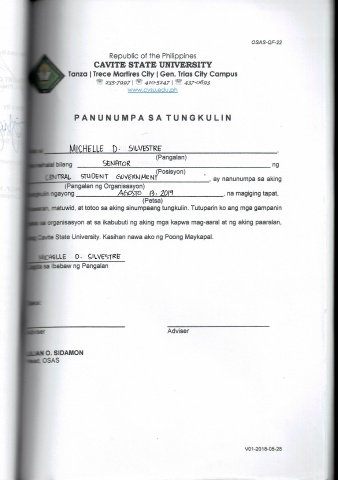 OSAS-QF-22
Republic of the Philippines
CAVITE STATE UNIVERSITY
Tanza | Trece Martires City | Gen. Trias City Campus
www.cvsu.edu.ph
PANUNUMPA SA TUNGKULIN
MICHELLE D. SILVESTRE
(Pangalan)
bilang SENATOR ng
(Posisyon)
CENTRAL STUDENT GOVERNMENT, ay nanunumpa sa aking
(Pangalan ng Organisasyon)
ngayong AGOSTO 13, 2019, na magiging tapat,
(Petsa)
matuwid, at totoo sa aking sinumpaang tungkulin. Tutuparin ko ang mga gampanin
sa organisasyon at sa ikabubuti ng aking mga kapwa mag-aaral at ng aking paaralan,
ang Cavite State University. Kasihan nawa ako ng Poong Maykapal.
MICHELLE D. SILVESTRE
sa Ibabaw ng Pangalan
Adviser Adviser
O. SIDAMON
OSAS
V01-2018-05-25